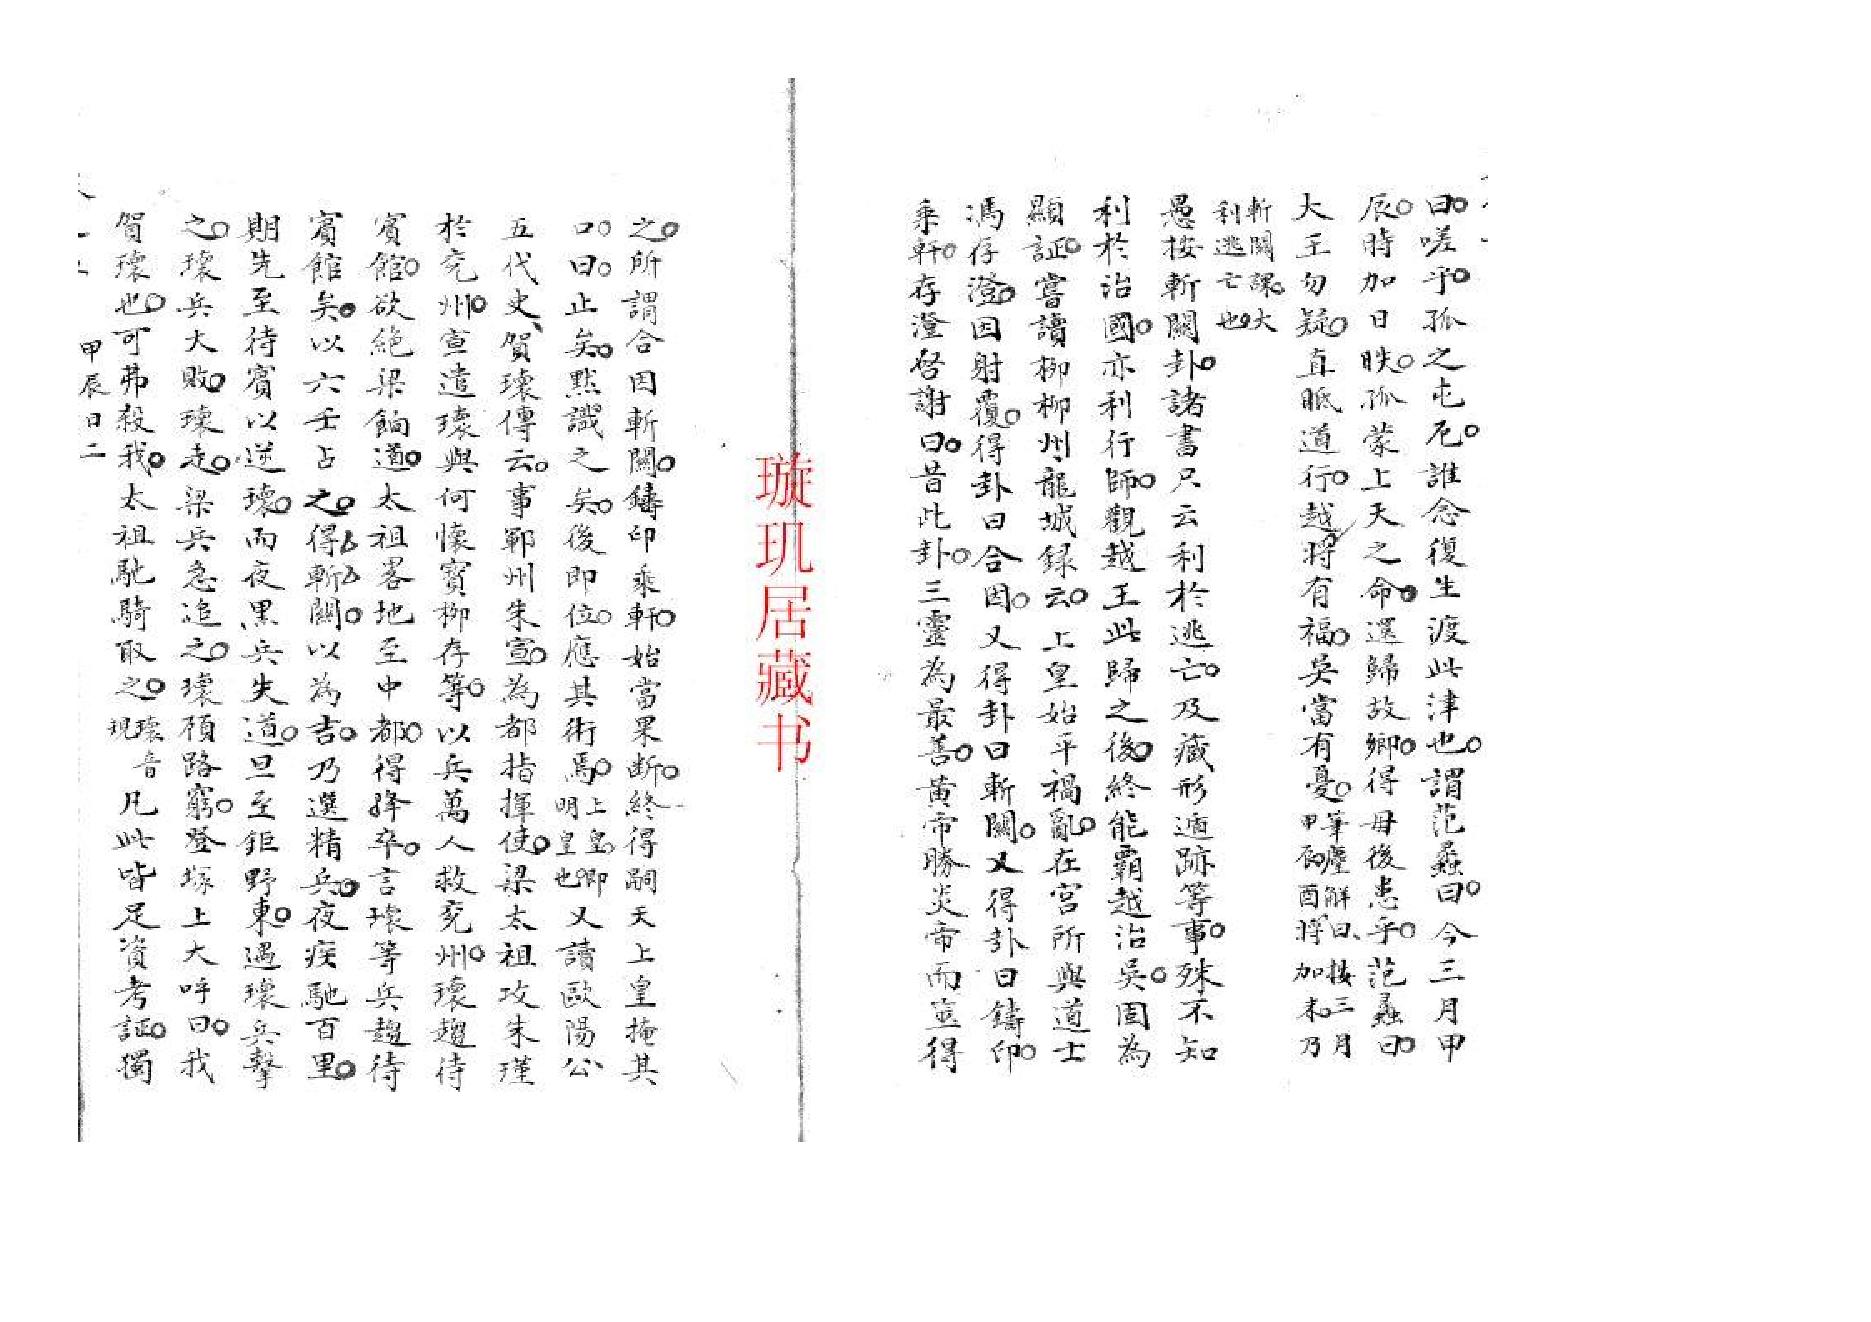 曰嗟乎孤之屯厄誰念復生渡此津也謂范蠡曰今三月甲
辰時加日昳孤蒙上天之命還歸故鄉得毋後患乎范蠡曰
大王勿疑直眂道行越將有福吳當有憂筆麈解曰按三月
甲辰酉將加未乃
斬關課大
利逃亡也
愚按斬關卦諸書只云利於逃亡及藏形遁跡等事殊不知
利於治國亦利行師觀越王此歸之後終能霸越治吳固為
顯証嘗讀柳柳州龍城録云上皇始平禍亂在宮所與道士
馮存澄因射覆得卦曰合因又得卦曰斬關又得卦曰鑄印
乘軒存澄啓謝曰昔此卦三靈為最善黃帝勝炎帝而筮得
璇玑居藏书
之所謂合因斬關鑄印乘軒始當果断終得嗣天上皇掩其
口曰止矣默識之矣後即位應其術焉上皇即
明皇也又讀歐陽公
五代史賀瓌傳云事鄆州朱宣為都指揮使梁太祖攻朱瑾
於兖州宣遣瓌與何懷寳柳存等以兵萬人救兖州瓌趨待
賓館欲絶梁餉道太祖畧地至中都得降卒言瓌等兵趨待
賓館矣以六壬占之得斬關以為吉乃選精兵夜疾馳百里
期先至待賓以逆瓌而夜黑兵失道旦至鉅野東遇瓌兵擊
之瓌兵大敗瓌走梁兵急追之瓌顧路窮登塚上大呼曰我
賀瓌也可弗殺我太祖馳騎取之瓌音
現凡此皆足資考証獨
甲辰日二